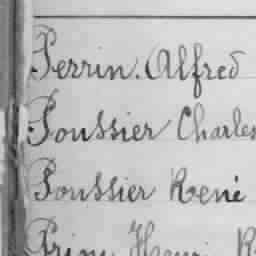 Perrin. Alfred
Poussier Charles
Poussier René